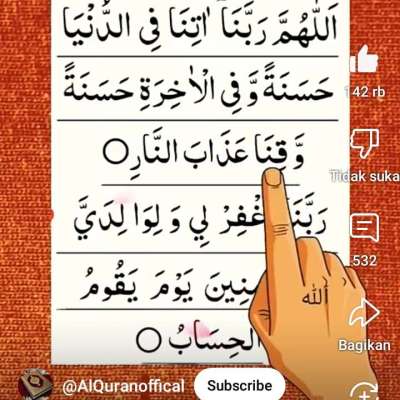 اَللّٰهُمَّ رَبَّنَا اٰتِنَا فِى الدُّنْيَا
حَسَنَةً وَّفِى الْاٰخِرَةِ حَسَنَةً
142 rb
وَّقِنَا عَذَابَ النَّارِ
Tidak suka
رَبَّنَا غْفِرْ لِي وَلِوَالِدَيَّ
532
مِنِينَ يَوْمَ يَقُومُ
الله
الْحِسَابُ
Bagikan
@AlQuranoffical
Subscribe